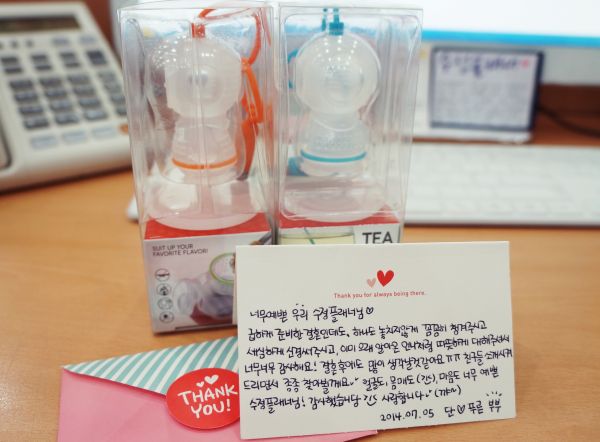 SUIT UP YOUR
FAVORITE FLAVOR!
TEA
Thank you for always being there.
너무예쁜 우리 수정플래너님♡
급하게 준비한 결혼인데도, 하나도 놓치지않게 꼼꼼히 챙겨주시고
세심하게 신경써주시고, 이미 오래 알아온 언니처럼 따뜻하게 대해주셔서
너무너무 감사해요! 결혼후에도 많이 생각날것같아요ㅠㅠ 친구들 소개시켜
드리면서 종종 찾아뵐게요~ 얼굴도, 몸매도 마음도 너무 예쁜
수정플래너님! 감사했습니당 사랑합니다~
2014.07.05 단♡푸른 부부
THANK
YOU!